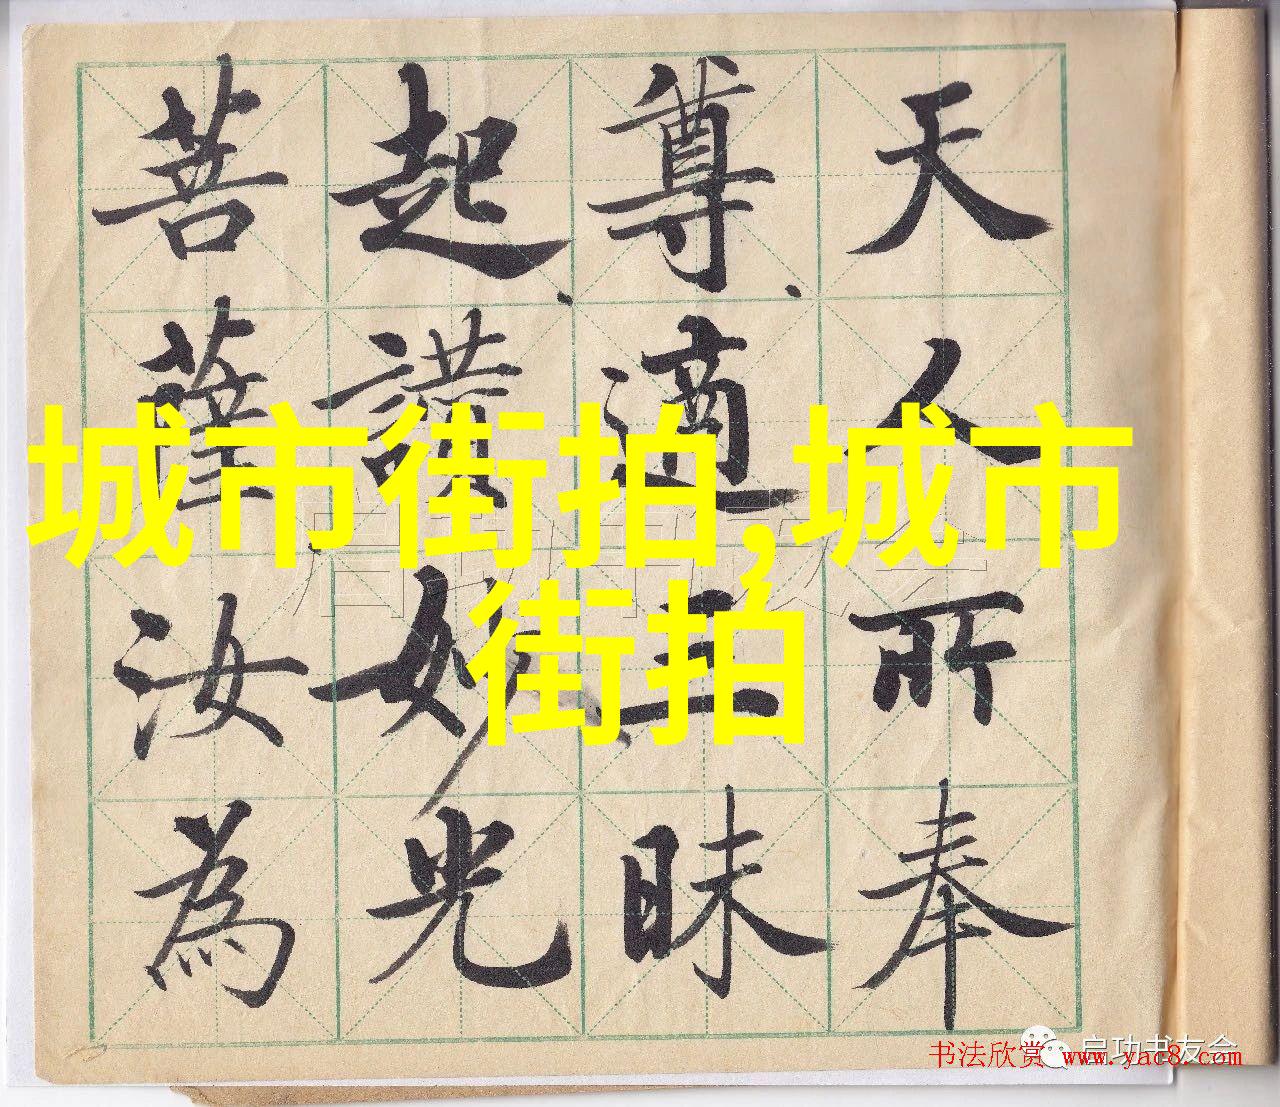 天人所奉
尊適三昧
起妙光
菩薩汝為
城市街拍,城市
街拍
启功书友会
书法欣赏 www.yac8.com
启功书友会